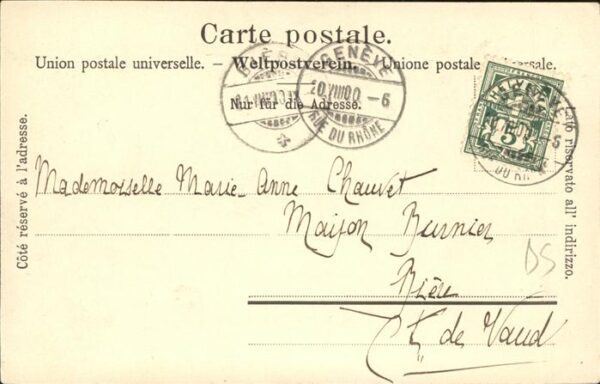 Carte postale.
Union postale universelle. – Weltpostverein. – Unione postale universale.
Nur für die Adresse.
Côté réservé à l'adresse.
Lato riservato all' indirizzo.
GENÈVE
20.VIII 00. – 6
RUE DU RHÔNE
BIÈRE
HELVETIA
5
Mademoiselle Marie-Anne Chauvet
Maison Burnier
Bière
Ct. de Vaud
DS